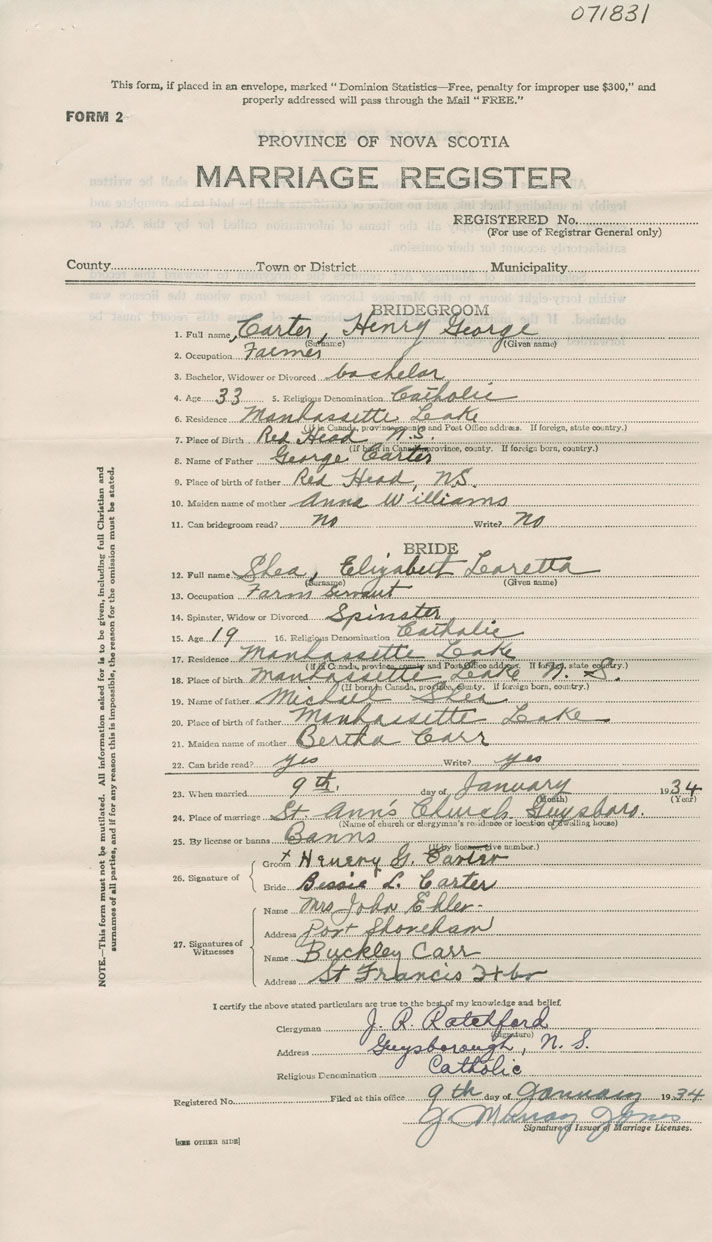 071831
This form, if placed in an envelope, marked "Dominion Statistics—Free, penalty for improper use $300," and
properly addressed will pass through the Mail "FREE."
FORM 2
PROVINCE OF NOVA SCOTIA
MARRIAGE REGISTER
REGISTERED No.
(For use of Registrar General only)
County Town or District Municipality
BRIDEGROOM
1. Full name Carter, Henry George
(Surname) (Given name)
2. Occupation Farmer
3. Bachelor, Widower or Divorced bachelor
4. Age 33 5. Religious Denomination Catholic
6. Residence Manhassette Lake
(If in Canada, province, county and Post Office address. If foreign, state country.)
7. Place of Birth Red Head N.S.
(If born in Canada, province, county. If foreign born, country.)
8. Name of Father George Carter
9. Place of birth of father Red Head, N.S.
10. Maiden name of mother Anna Williams
11. Can bridegroom read? no Write? no
BRIDE
12. Full name Shea, Elizabeth Loretta
(Surname) (Given name)
13. Occupation Farm Servant
14. Spinster, Widow or Divorced Spinster
15. Age 19 16. Religious Denomination Catholic
17. Residence Manhassette Lake
(If in Canada, province, county and Post Office address. If foreign, state country.)
18. Place of birth Manhassette Lake N.S.
(If born in Canada, province, county. If foreign born, country.)
19. Name of father Michael Shea
20. Place of birth of father Manhassette Lake
21. Maiden name of mother Bertha Carr
22. Can bride read? yes Write? yes
23. When married 9th. day of January 1934
(Month) (Year)
24. Place of marriage St Ann's Church Guysboro.
(Name of church or clergyman's residence or location of dwelling house)
25. By license or banns Banns
(If by license, give number.)
26. Signature of
Groom X Henery G. Carter
Bride Bessie L. Carter
27. Signatures of Witnesses
Name Mrs John Ehler
Address Port Shoreham
Name Buckley Carr
Address St Francis
I certify the above stated particulars are true to the best of my knowledge and belief.
Clergyman J. R. Ratchford
(Signature)
Address Guysborough, N. S.
Religious Denomination Catholic
Registered No. Filed at this office 9th day of January 1934
J Murray Jones
Signature of Issuer of Marriage Licenses.
[SEE OTHER SIDE]
NOTE.—This form must not be mutilated. All information asked for is to be given, including full Christian and
surnames of all parties, and if for any reason this is impossible, the reason for the omission must be stated.